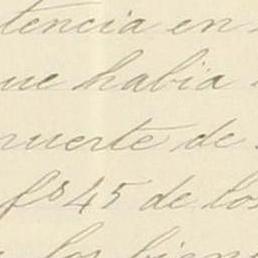 tencia en
que habia
muerte de
fs 45 de los
los biene